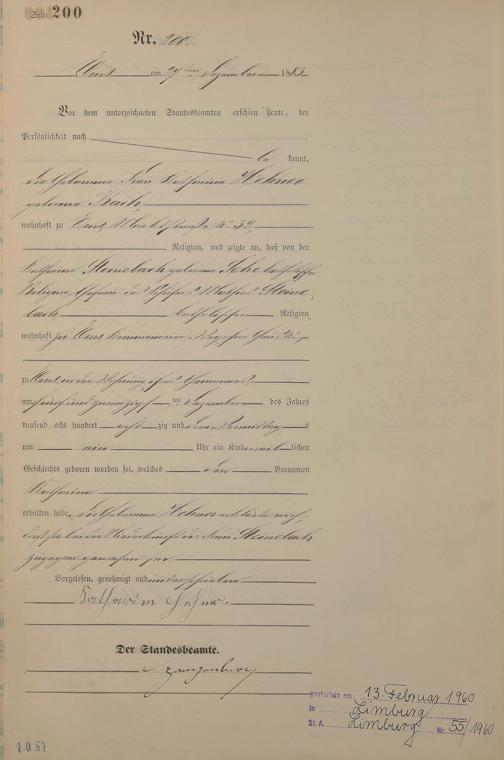 Seite 200
Nr. 200.
Ems am 29ten Dezember 1883
Vor dem unterzeichneten Standesbeamten erschien heute, der
Persönlichkeit nach
be kannt,
die Hebamme Frau Katharina Hehner
geborene Bach
wohnhaft zu Ems,
Religion, und zeigte an, daß von der
Katharina Steinebach geborene katholischer
Religion, Ehefrau des Mathias Steine-
bach katholischer Religion,
wohnhaft zu Ems
zu Ems in der Wohnung ihres Ehemannes
am fünf und zwanzigsten Dezember des Jahres
tausend acht hundert achtzig und drei Vormittags
um neun Uhr ein Kind weiblichen
Geschlechts geboren worden sei, welches den Vornamen
Katharina
erhalten habe. Die Hebamme Hehner erklärte noch,
daß sie bei der Niederkunft der Frau Steinebach
zugegen gewesen sei.
Vorgelesen, genehmigt und unterschrieben
Katharina Hehner.
Der Standesbeamte.
gestorben am 13. Februar 1960
in Limburg
St. A. Limburg Nr. 55/1960